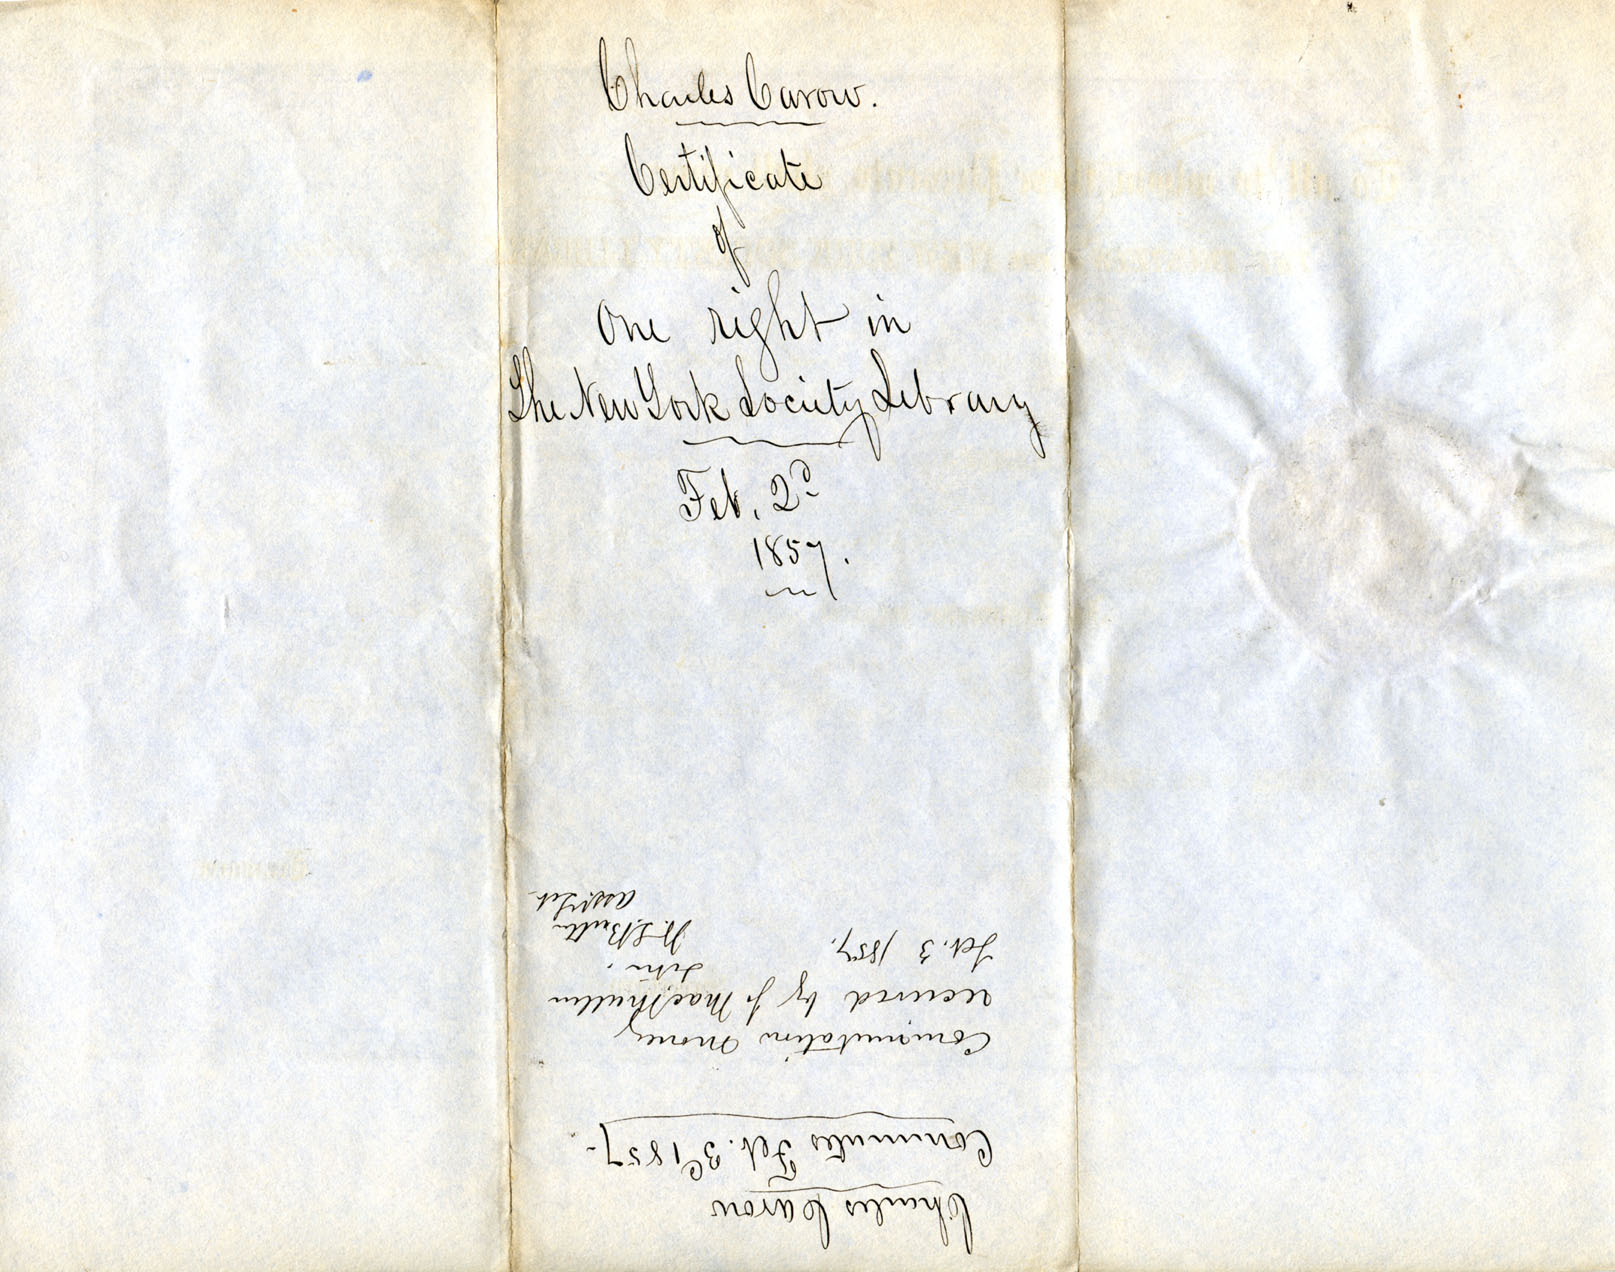 Charles Carow.
Certificate
of
One right in
The New York Society Library
Feb. 2d
1857.
Charles Carow
Commutes Feb. 3d 1857.
Commutation money
received by J. MacMullen
Libn.
Feb. 3 1857.
W. S. Butler
Asst. Lib.